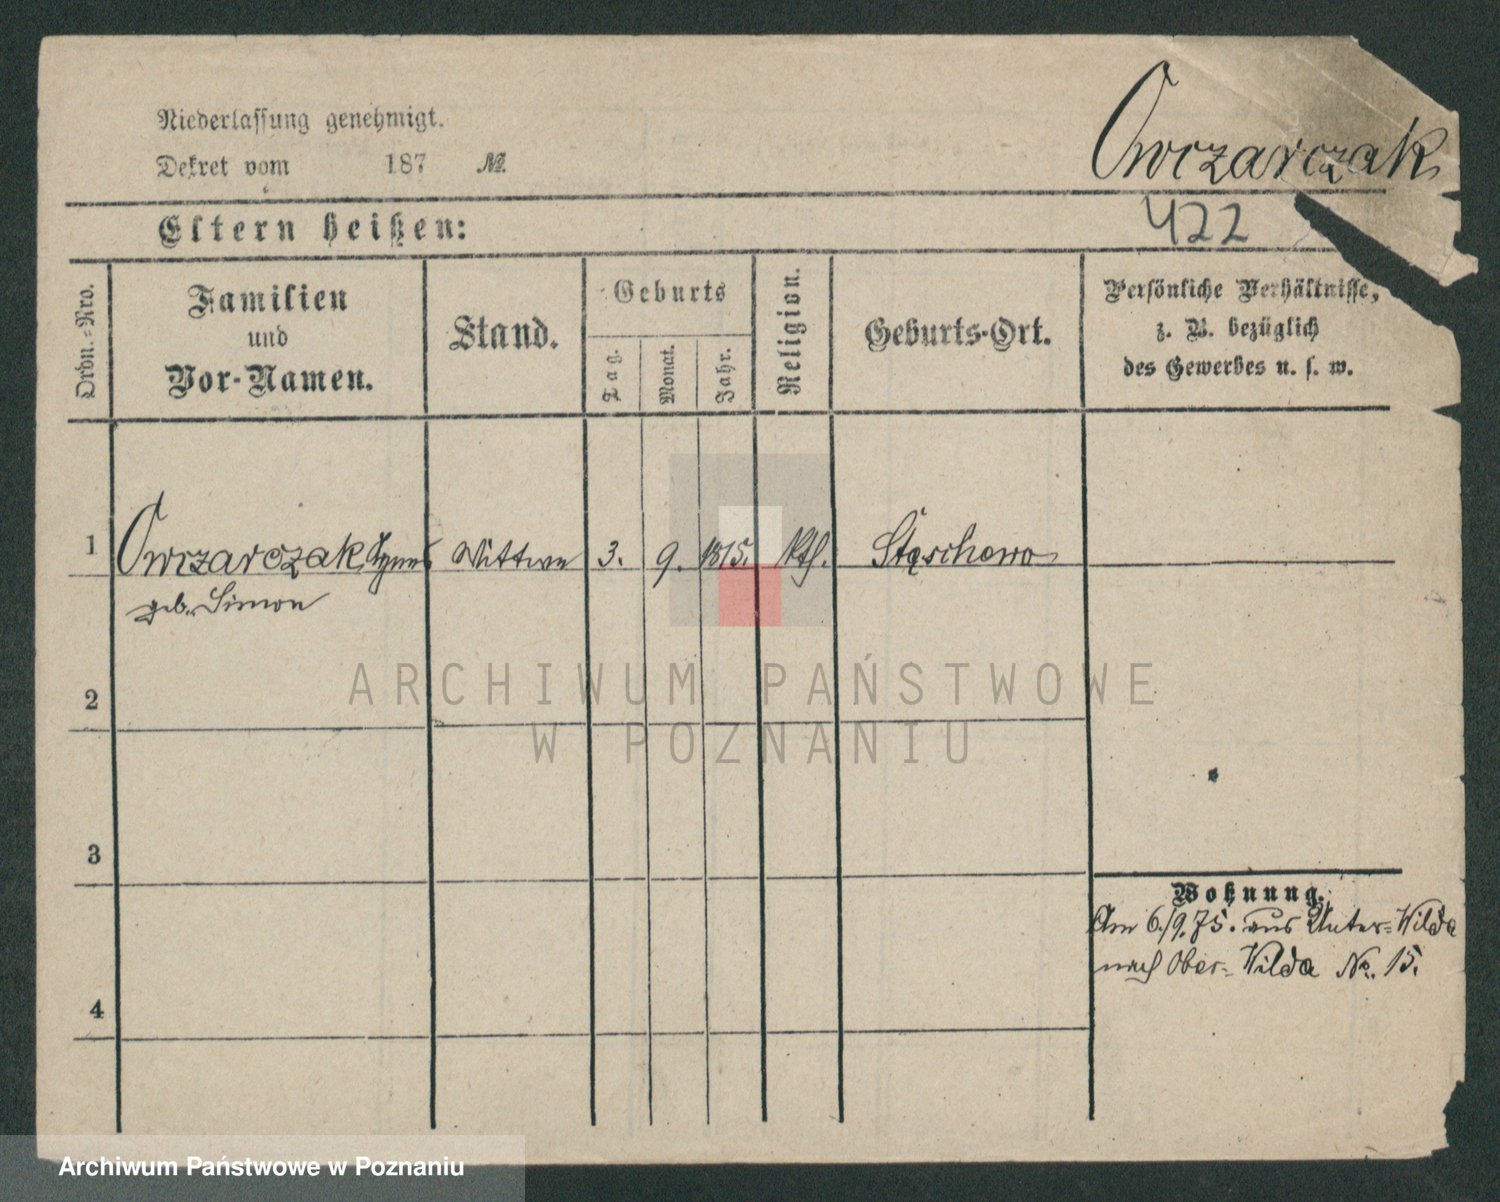 Niederlassung genehmigt.
Dekret vom 187 №
Owczarczak
422
Eltern heißen:
Ordn.=Nro.
Familien
und
Vor-Namen.
Stand.
Geburts
Tag.
Monat.
Jahr.
Religion.
Geburts-Ort.
Persönliche Verhältnisse,
z. B. bezüglich
des Gewerbes u. s. w.
1 Owczarczak, Agnes Wittwe 3. 9. 1815. kth.
geb. Simon
2
3
4
Wohnung.
Am 6/9.75. aus Unter=Wilda
nach Ober=Wilda No. 15.
ARCHIWUM PAŃSTWOWE
W POZNANIU
Archiwum Państwowe w Poznaniu